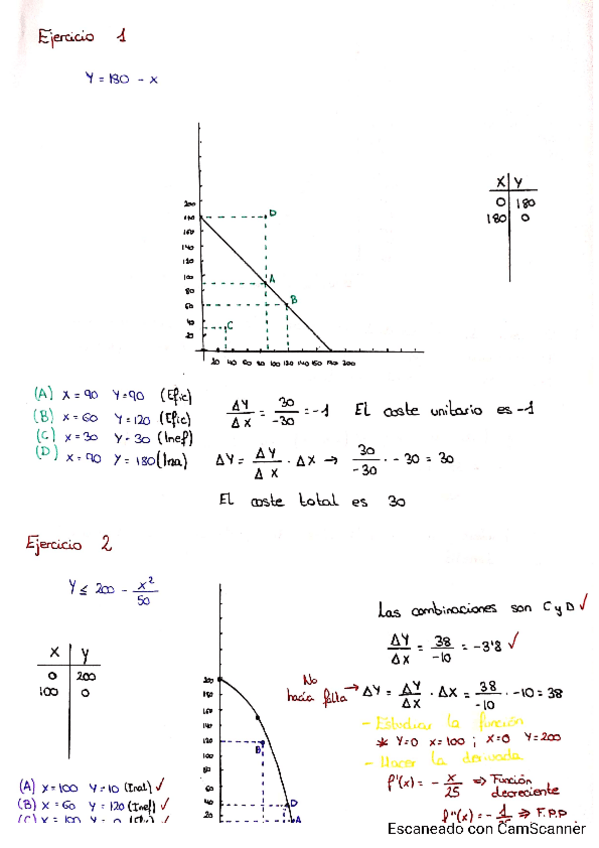 Ejercicio 1
Y = 180 - x
X Y
0 180
180 0
200
180
160
140
120
100
80
60
40
20
D
A
B
C
20 40 60 80 100 120 140 160 180 200
(A) X = 90 Y=90 (Efic)
(B) X = 60 Y = 120 (Efic)
(C) X = 30 Y = 30 (Inef)
(D) X = 90 Y = 180 (Ina)
ΔY/ΔX = 30/-30 = -1 El coste unitario es -1
ΔY = ΔY/ΔX · ΔX → 30/-30 · -30 = 30
El coste total es 30
Ejercicio 2
Y ≤ 200 - x²/50
X Y
0 200
100 0
200
180
160
140
120
100
80
60
40
20
B
D
A
Las combinaciones son C y D ✓
ΔY/ΔX = 38/-10 = -3'8 ✓
No hacía falta → ΔY = ΔY/ΔX · ΔX = 38/-10 · -10 = 38
- Estudiar la función
* Y=0 x=100 ; x=0 Y=200
- Hacer la derivada
f'(x) = - x/25 ⇒ Función decreciente
f''(x) = - 1/25 ⇒ F.P.P
(A) X = 100 Y = 10 (Inal) ✓
(B) X = 60 Y = 120 (Inef) ✓
(C) X = 100 Y = 0 (Efic) ✓
Escaneado con CamScanner